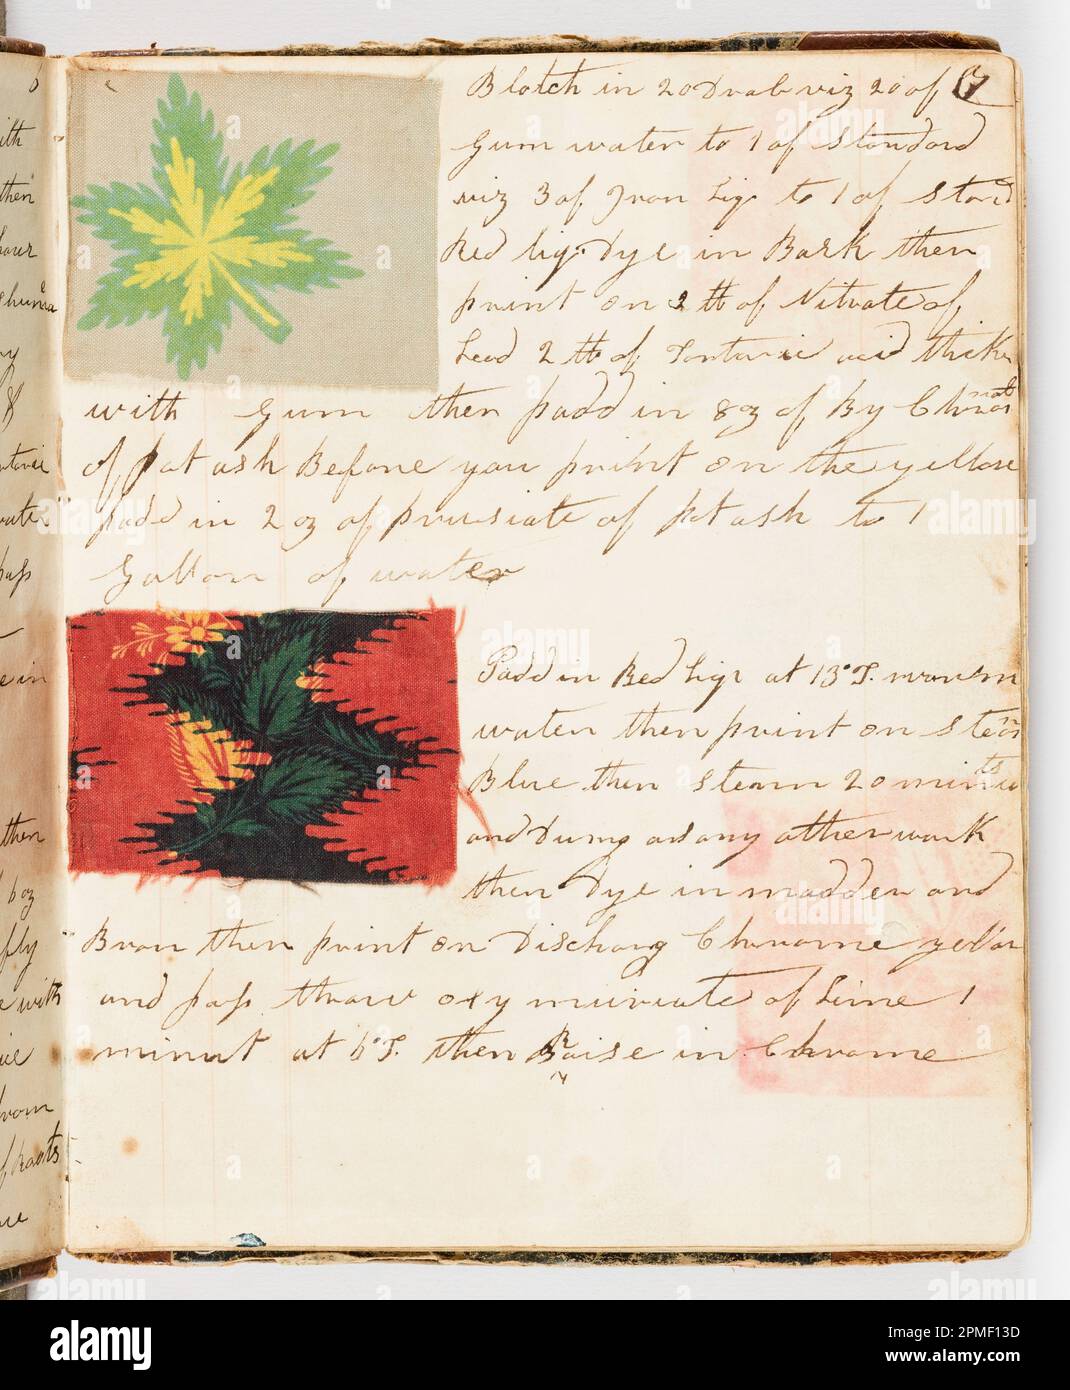 Blotch in 20 Drab viz 20 of
Gum water to 1 of Standard
viz 3 of Iron Liq to 1 of Stand
Red liq. Dye in Bark then
print on 2 ℔ of Nitrate of
Lead 2 ℔ of Tartaric acid thicken
with Gum then padd in 8 oz of By Chromat
of pot ash Before you print on the yellow
padd in 2 oz of prussiate of pot ash to 1
Gallon of water
Padd in Red Liqr at 13°T. warm
water then print on Steam
Blue then steam 20 minuts
and Dung as any other work
then Dye in madder and
Bran then print on Discharg Chrome yellow
and pass thraw oxy muriate of Lime 1
minut at 6°T. then Raise in Chrome
alamy
Image ID: 2PMF13D
www.alamy.com